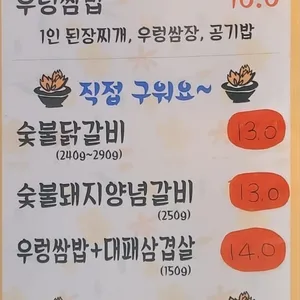 우렁쌈밥 10.0
1인 된장찌개, 우렁쌈장, 공기밥
직접 구워요~
숯불닭갈비 13.0
(240g~290g)
숯불돼지양념갈비 13.0
(250g)
우렁쌈밥+대패삼겹살 14.0
(150g)